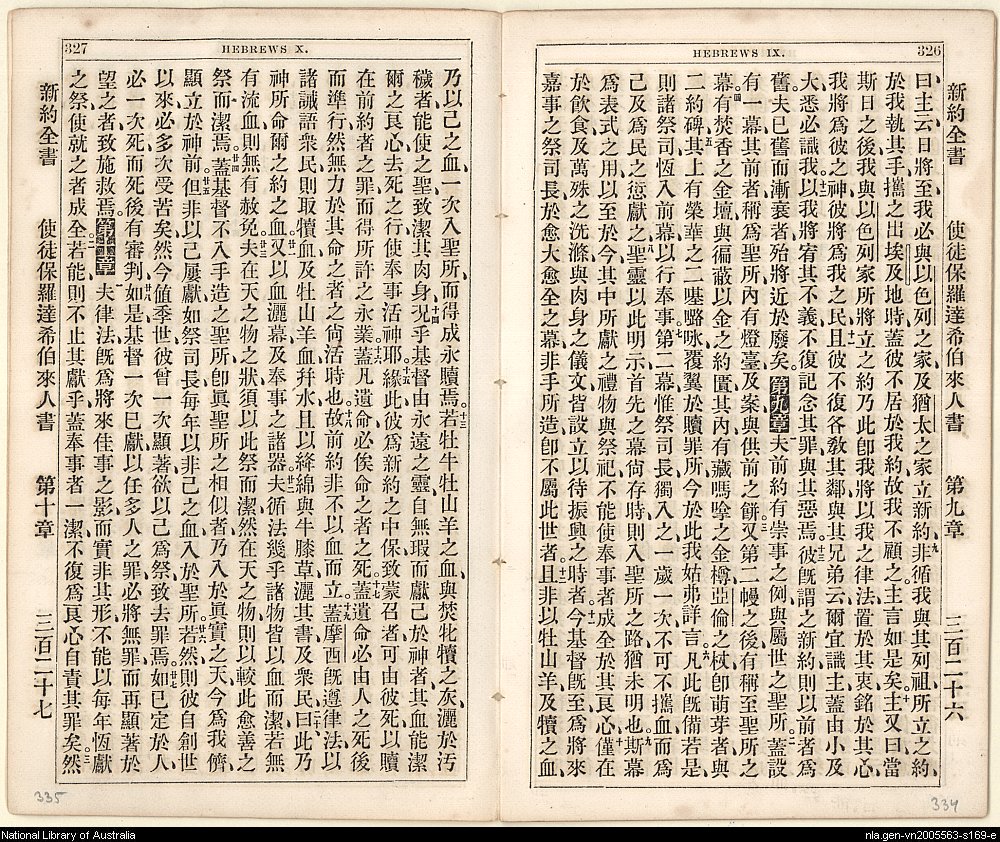 326
HEBREWS IX.
新約全書 使徒保羅達希伯來人書 第九章 三百二十六
曰、主云、日將至、我必與以色列之家、及猶太之家、立新約、九非循我與其列祖、所立之約、
於我執其手、攜之出埃及地時、蓋彼不居於我約、故我不顧之、主言如是矣。十主又曰、當
斯日之後、我與以色列家所將立之約、乃此卽我將以我之律法、置於其衷、銘於其心、
我將爲彼之神、彼將爲我之民、十一且彼不復各敎其鄰、與其兄弟云、爾宜識主、蓋由小及
大、悉必識我、十二以我將宥其不義、不復記念其罪、與其惡焉。十三彼旣謂之新約、則以前者爲
舊、夫已舊而漸衰者、殆將近於廢矣。第九章一夫前約有崇事之例、與屬世之聖所、二蓋設
有一幕、其前者稱爲聖所、內有燈臺、及案、與供前之餅、三又第二幔之後、有稱至聖所之
幕、四有焚香之金壇、與徧蔽以金之約匱、其內有藏嗎嗱之金樽、亞倫之杖卽萌芽者、與
二約碑、五其上有榮華之二𠼻㗖咏、覆翼於贖罪所、今於此我姑弗詳言、六凡此旣備若是、
則諸祭司恆入前幕、以行奉事、七第二幕、惟祭司長獨入之、一歲一次、不可不攜血、而爲
己及爲民之愆獻之、八聖靈以此明示、首先之幕尙存時、則入聖所之路、猶未明也、九斯幕
爲表式之用、以至於今、其中所獻之禮物與祭祀、不能使奉事者成全於其良心、十僅在
於飲食、及萬殊之洗滌、與肉身之儀文、皆設立以待振興之時者、十一今基督旣至、爲將來
嘉事之祭司長、於愈大愈全之幕、非手所造、卽不屬此世者。十二且非以牡山羊及犢之血、
327
HEBREWS X.
乃以己之血、一次入聖所、而得成永贖焉。十三若牡牛牡山羊之血、與焚牝犢之灰、灑於汚
穢者、能使之聖、致潔其肉身、十四況乎基督由永遠之靈、自無瑕而獻己於神者、其血能潔
爾之良心、去死之行、使奉事活神耶、十五緣此彼爲新約之中保、致蒙召者、可由彼死、以贖
在前約者之罪、而得所許之永業、十六蓋凡遺命、必俟命之者之死、十七蓋遺命必由人之死後
而準行、然無力於其命之者之尙活時也、十八故前約非不以血而立、十九蓋摩西旣遵律法、以
諸誡語衆民、則取犢血、及牡山羊血、幷水、且以絳綿與牛膝草、灑其書、及衆民曰、二十此乃
神所命爾之約之血、二一又以血灑幕及奉事之諸器、二二夫循法、幾乎諸物皆以血而潔、若無
有流血、則無有赦免、二三夫在天之物之狀、須以此祭而潔、然在天之物、則以較此愈善之
祭而潔焉。廿四蓋基督不入手造之聖所、卽眞聖所之相似者、乃入於眞實之天、今爲我儕
顯立於神前、廿五但非以己屢獻、如祭司長每年以非己之血、入於聖所、廿六若然、則彼自創世
以來、必多次受苦矣、然今値季世、彼曾一次顯著、欲以己爲祭、致去罪焉。廿七如已定於人
必一次死、而死後有審判、廿八如是基督一次已獻、以任多人之罪、必將無罪而再顯著於
望之者、致施救焉。第十章一夫律法旣爲將來佳事之影、而實非其形、不能以每年恆獻
之祭、使就之者成全、二若能、則不止其獻乎、蓋奉事者一潔、不復爲良心自責其罪矣、三然
新約全書 使徒保羅達希伯來人書 第十章 三百二十七
335
334
National Library of Australia
nla.gen-vn2005563-s169-e